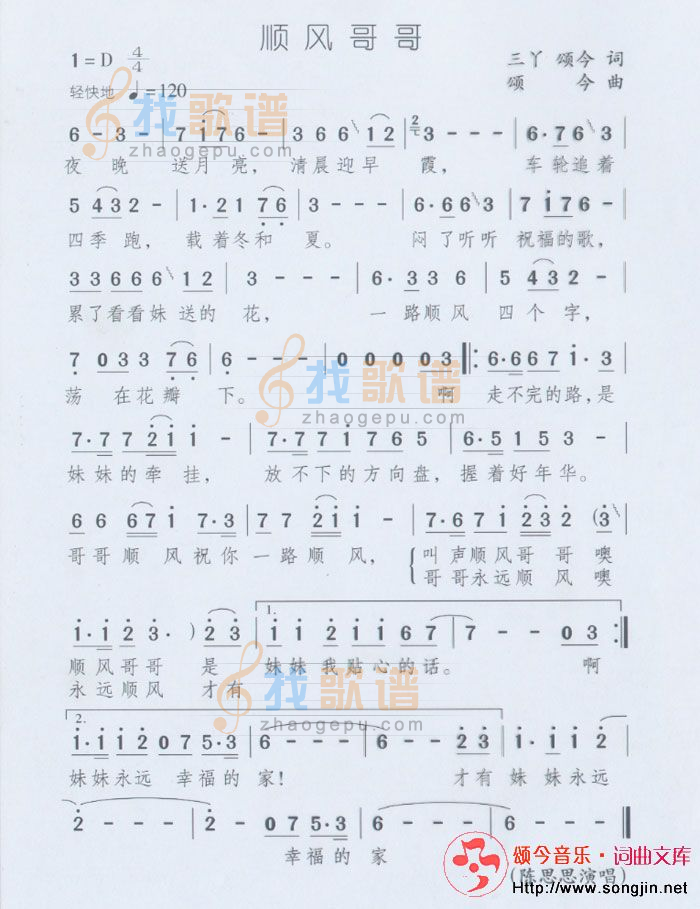 顺风哥哥
1=D 4/4 三丫 颂今 词
轻快地 ♩=120 颂 今 曲
6 - 3 - | 7 1 7 6 - | 3 6 6 1 2 | 3 - - - | 6· 7 6 3
夜 晚 送月 亮, 清晨迎早 霞, 车轮追着
5 4 3 2 - | 1· 2 1 7 6 | 3 - - - | 6· 6 6 3 | 7 1 7 6
四季 跑, 载着冬和 夏。 闷了听听 祝福的歌,
3 3 6 6 6 1 2 | 3 - - - | 6· 3 3 6 | 5 4 3 2 -
累了看看妹 送的 花, 一路顺风 四个 字,
7 0 3 3 7 6 | 6 - - - | 0 0 0 0 3 |: 6· 6 6 7 1· 3
荡 在花瓣 下。 啊 走不完的路,是
7· 7 7 2 1 1 - | 7· 7 7 1 7 6 5 | 6· 5 1 5 3
妹妹的牵 挂, 放不下的方向盘, 握着好年华。
6 6 6 7 1 7· 3 | 7 7 2 1 1 - | 7· 6 7 1 2 3 2 (3
哥哥顺 风祝你 一路顺 风, 叫声顺风哥 哥噢
哥哥永远顺 风噢
1· 1 2 3· ) 2 3 | 1. 1 1 2 1 1 6 7 | 7 - - 0 3 :|
顺风哥哥 是 妹妹 我贴心的话。 啊
永远顺风 才有
2. 1· 1 1 2 0 7 5· 3 | 6 - - - | 6 - - 2 3 | 1· 1 1 2
妹妹永远 幸福的 家! 才有 妹妹永远
2 - - - | 2 - 0 7 5· 3 | 6 - - - | 6 - - - ‖
幸福的 家
(陈思思演唱)
找歌谱
zhaogepu.com
找歌谱
zhaogepu.com
找歌谱
zhaogepu.com
颂今音乐·词曲文库
Http://www.songjin.net